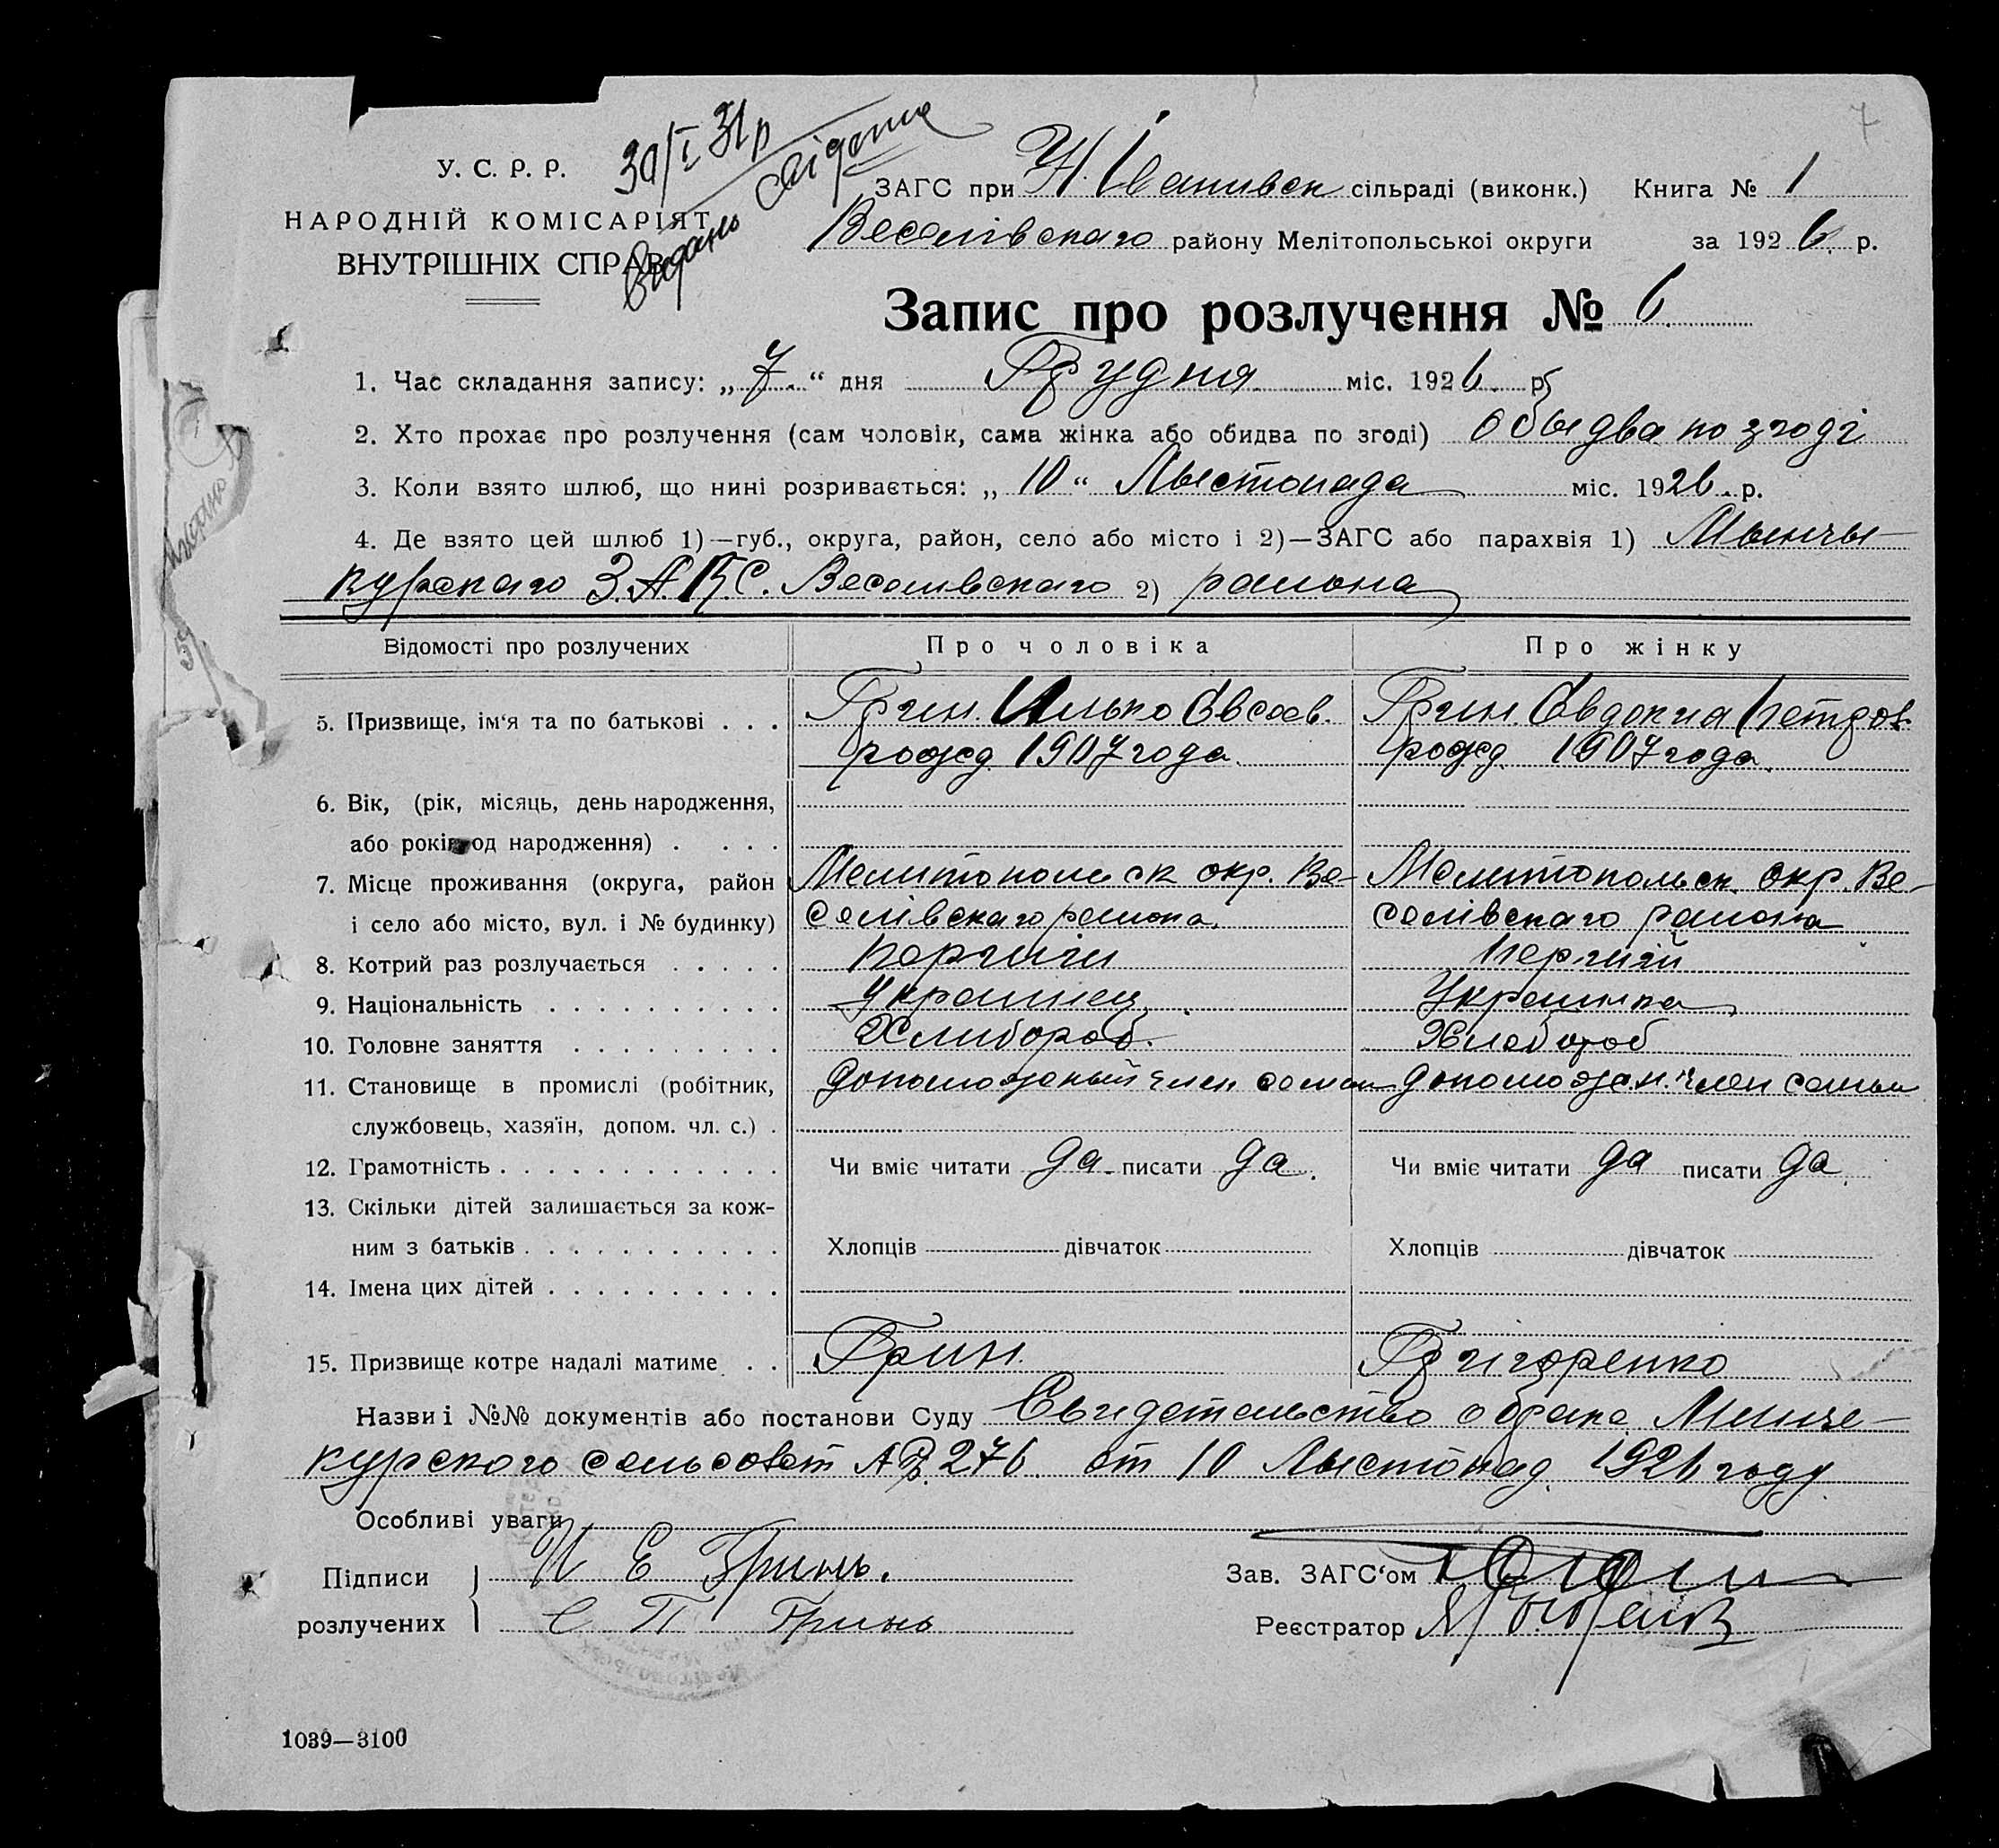 7
У. С. Р. Р.
НАРОДНІЙ КОМІСАРІЯТ
ВНУТРІШНІХ СПРАВ
30/I 31р
Видано свідоцт
ЗАГС при Н. Іванивск сільраді (виконк.) Книга № 1
Веселівскаго району Мелітопольської округи за 1926 р.
Запис про розлучення № 6
1. Час складання запису: „ 7 “ дня Грудня міс. 1926 р
2. Хто прохає про розлучення (сам чоловік, сама жінка або обидва по згоді) обыдва по згоді
3. Коли взято шлюб, що нині розривається: „ 10 “ Лыстопада міс. 1926 р.
4. Де взято цей шлюб 1)—губ., округа, район, село або місто і 2)—ЗАГС або парахвія 1) Мынчы-
курскаго З.А.Г.С. Веселивскаго 2) раиона
Відомості про розлучених Про чоловіка Про жінку
5. Призвище, ім‘я та по батькові . . . Грин. Илько Овсеев. Грин. Євдокиа Петров.
рожд 1907 года. рожд 1907 года.
6. Вік, (рік, місяць, день народження,
або років од народження) . . . .
7. Місце проживання (округа, район Мелитополиск окр. Ве- Мелитопольск. окр. Ве-
і село або місто, вул. і № будинку) селівскаго раиона. селівскаго раиона
8. Котрий раз розлучається . . . . . Первий
9. Національність . . . . . . . . . . Украинец Украинка
10. Головне заняття . . . . . . . . . Хлибороб. Хлебороб
11. Становище в промислі (робітник, допоможный член семьи допоможн. член семьи
службовець, хазяїн, допом. чл. с.) .
12. Грамотність . . . . . . . . . . . . Чи вміє читати да писати да. Чи вміє читати да писати да.
13. Скільки дітей залишається за кож-
ним з батьків . . . . . . . . . . . Хлопців дівчаток Хлопців дівчаток
14. Імена цих дітей . . . . . . . . . .
15. Призвище котре надалі матиме . . Грин. Григоренко
Назви і №№ документів або постанови Суду Свидетельство о браке Минче-
курского сельсовет 276 от 10 Лыстопад. 1926 году
Особливі уваги
Підписи розлучених
И Е Гринь.
Е П Гринь
Зав. ЗАГС‘ом
Реєстратор
1039—3100